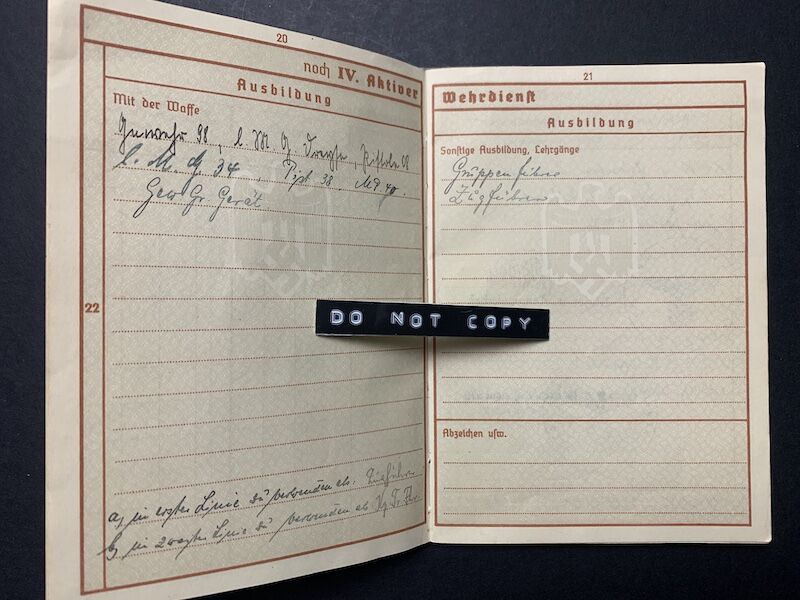 20
noch IV. Aktiver
Ausbildung
Mit der Waffe
Gewehr 98, l. M. G. Dreyse, Pistole 08
l. M. G. 34, Pist 38, MP 40.
Gew Gr. Gerät
22
a) in erster Linie zu verwenden als: Zugführer
b) in zweiter Linie zu verwenden als
21
Wehrdienst
Ausbildung
Sonstige Ausbildung, Lehrgänge
Gruppenführer
Zugführer
DO NOT COPY
Abzeichen usw.